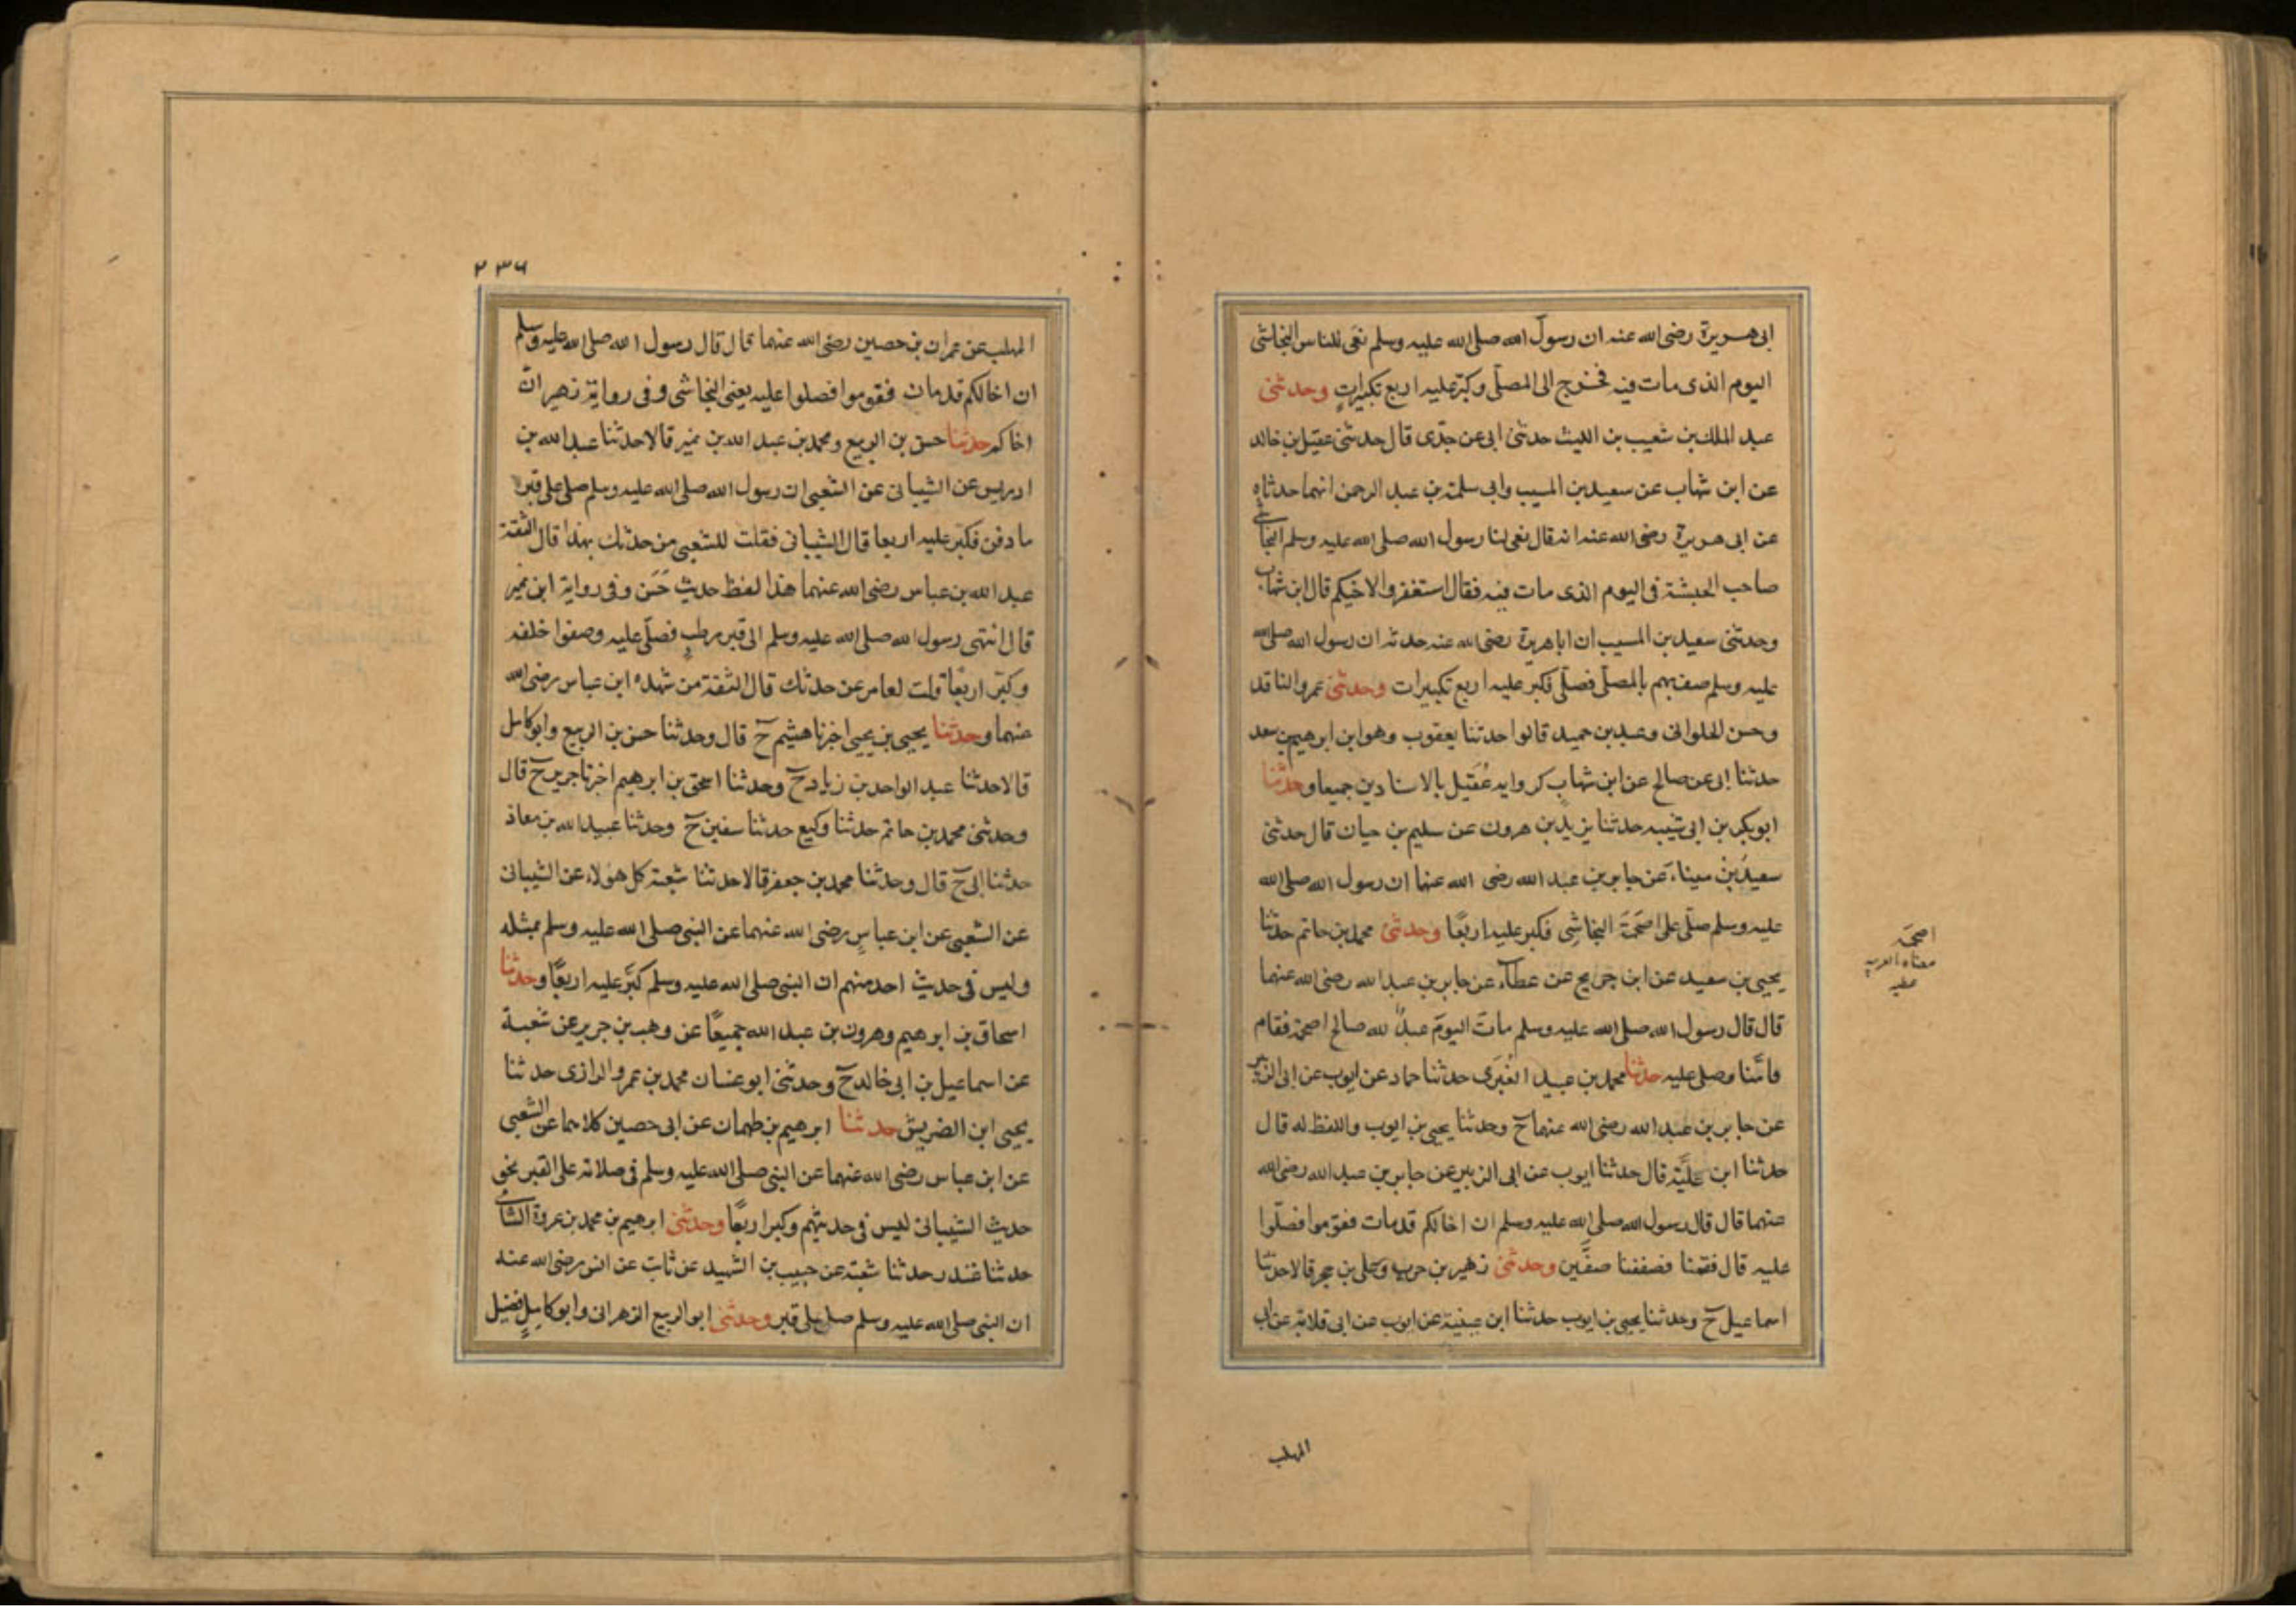 ابى هريرة رضى الله عنه ان رسول الله صلى الله عليه وسلم نعى للناس النجاشى
اليوم الذى مات فيه فخرج الى المصلّى وكبّر عليه اربع تكبيراتٍ وحدثنى
عبد الملك بن شعيب بن الليث حدثنى ابى عن جدّى قال حدثنى عقيل بن خالد
عن ابن شهاب عن سعيد بن المسيب وابى سلمة بن عبد الرحمن انهما حدثاه
عن ابى هريرة رضى الله عنه انه قال نعى لنا رسول الله صلى الله عليه وسلم النجاشى
صاحب الحبشة فى اليوم الذى مات فيه فقال استغفروا لاخيكم قال ابن شهاب
وحدثنى سعيد بن المسيب ان ابا هريرة رضى الله عنه حدثه ان رسول الله صلى الله
عليه وسلم صف بهم بالمصلّى فصلّى فكبر عليه اربع تكبيرات وحدثنى عمرو الناقد
وحسن الحلوانى وعبد بن حميد قالوا حدثنا يعقوب وهو ابن ابرهيم بن سعد
حدثنا ابى عن صالح عن ابن شهاب كروايه عُقَيل بالاسنادين جميعا وحدثنا
ابو بكر بن ابى شيبه حدثنا يزيد بن هرون عن سليم بن حيان قال حدثنى
سعيد بن ميناء عن جابر بن عبد الله رضى الله عنهما ان رسول الله صلى الله
عليه وسلم صلّى على اصحَمَةَ النجاشِى فكبر عليه اربعًا وحدثنى محمد بن حاتم حدثنا
يحيى بن سعيد عن ابن جريج عن عطآء عن جابر بن عبد الله رضى الله عنهما
قال قال رسول الله صلى الله عليه وسلم ماتَ اليومَ عبدٌ لله صالح اصحمة فقام
فامّنا وصلى عليه حدثنا محمد بن عبيد الغُبَرى حدثنا حماد عن ايوب عن ابى الزبير
عن جابر بن عبد الله رضى الله عنهما ح وحدثنا يحيى بن ايوب واللفظ له قال
حدثنا ابن عُلَيَّة قال حدثنا ايوب عن ابى الزبير عن جابر بن عبد الله رضى الله
عنهما قال قال رسول الله صلى الله عليه وسلم ان اخالكم قد مات فقوموا فصلّوا
عليه قال فقمنا فصففنا صفّين وحدثنى زهير بن حرب وعلى بن حجر قالا حدثنا
اسماعيل ح وحدثنا يحيى بن ايوب حدثنا ابن عليّة عن ايوب عن ابى قلابة عن ابى
اصحمة
معناه بالعربيه
عطيه
المهلب
٢٣٦
المهلب عن عمران بن حصين رضى الله عنهما قال قال رسول الله صلى الله عليه وسلم
ان اخالكم قد مات فقوموا فصلوا عليه يعنى النجاشى وفى رواية زهير انّ
اخاكم حدثنا حسن بن الربيع ومحمد بن عبد الله بن نمير قالا حدثنا عبد الله بن
ادريس عن الشيبانى عن الشعبى ان رسول الله صلى الله عليه وسلم صلى على قبر
ما دفن فكبّر عليه اربعا قال الشيبانى فقلت للشعبى من حدثك بهذا قال الثقة
عبد الله بن عباس رضى الله عنهما هذا لفظ حديث حَسَن وفى رواية ابن نمير
قال انتهى رسول الله صلى الله عليه وسلم الى قبر رطبٍ فصلّى عليه وصفوا خلفه
وكبّر اربعًا قلت لعامر من حدثك قال الثقة من شهده ابن عباس رضى الله
عنهما وحدثنا يحيى بن يحيى اخبرنا هشيم ح قال وحدثنا حسن بن الربيع وابو كامل
قالا حدثنا عبد الواحد بن زياد ح وحدثنا اسحق بن ابرهيم اخبرنا جرير ح قال
وحدثنى محمد بن حاتم حدثنا وكيع حدثنا سفين ح وحدثنا عبيد الله بن معاذ
حدثنا ابى ح قال وحدثنا محمد بن جعفر قالا حدثنا شعبة كل هؤلاء عن الشيبانى
عن الشعبى عن ابن عباسٍ رضى الله عنهما عن النبى صلى الله عليه وسلم بمثله
وليس فى حديث احد منهم ان النبى صلى الله عليه وسلم كبّر عليه اربعًا وحدثنا
اسحاق بن ابرهيم وهرون بن عبد الله جميعًا عن وهب بن جرير عن شعبة
عن اسماعيل بن ابى خالد ح وحدثنى ابو غسان محمد بن عمرو الرازى حدثنا
يحيى ابن الضريس حدثنا ابرهيم بن طهمان عن ابى حصين كلاهما عن الشعبى
عن ابن عباس رضى الله عنهما عن النبى صلى الله عليه وسلم فى صلاته على القبر نحو
حديث الشيبانى ليس فى حديثهم وكبر اربعًا وحدثنى ابرهيم بن محمد بن عرعرة الشامى
حدثنا غندر حدثنا شعبة عن حبيب بن الشهيد عن ثابت عن انس رضى الله عنه
ان النبى صلى الله عليه وسلم صلى على قبر وحدثنى ابو الربيع الزهرانى وابو كامِلٍ فضيل